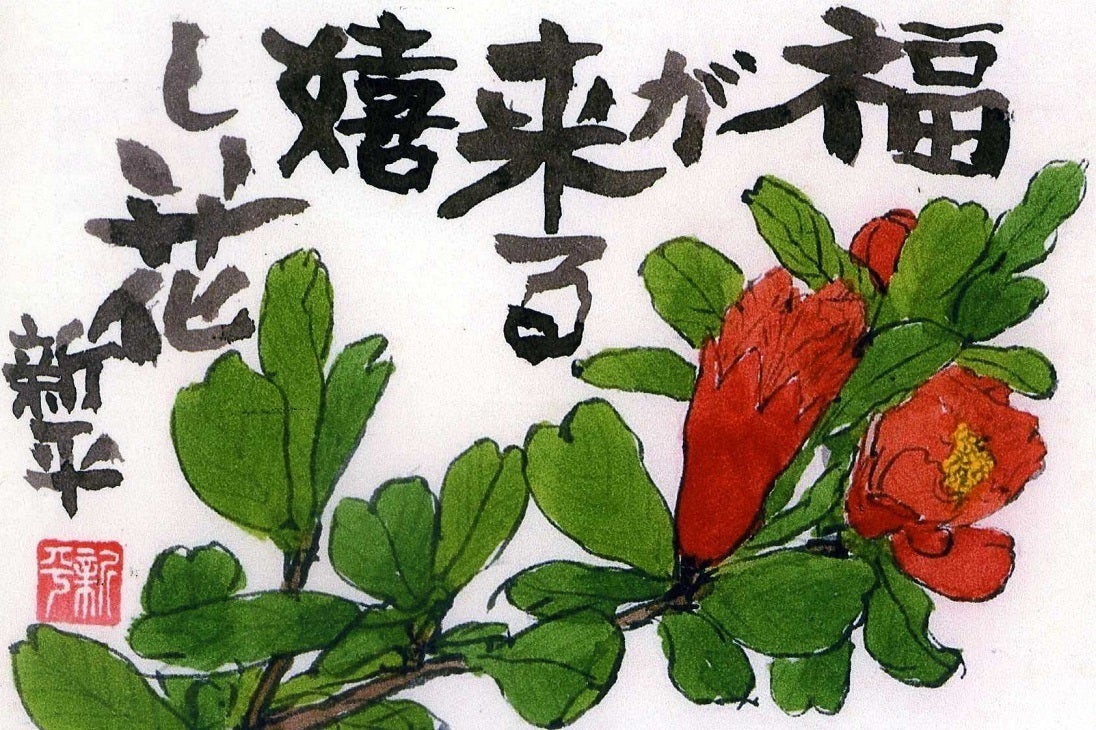 福が来る嬉し花
新平
新平